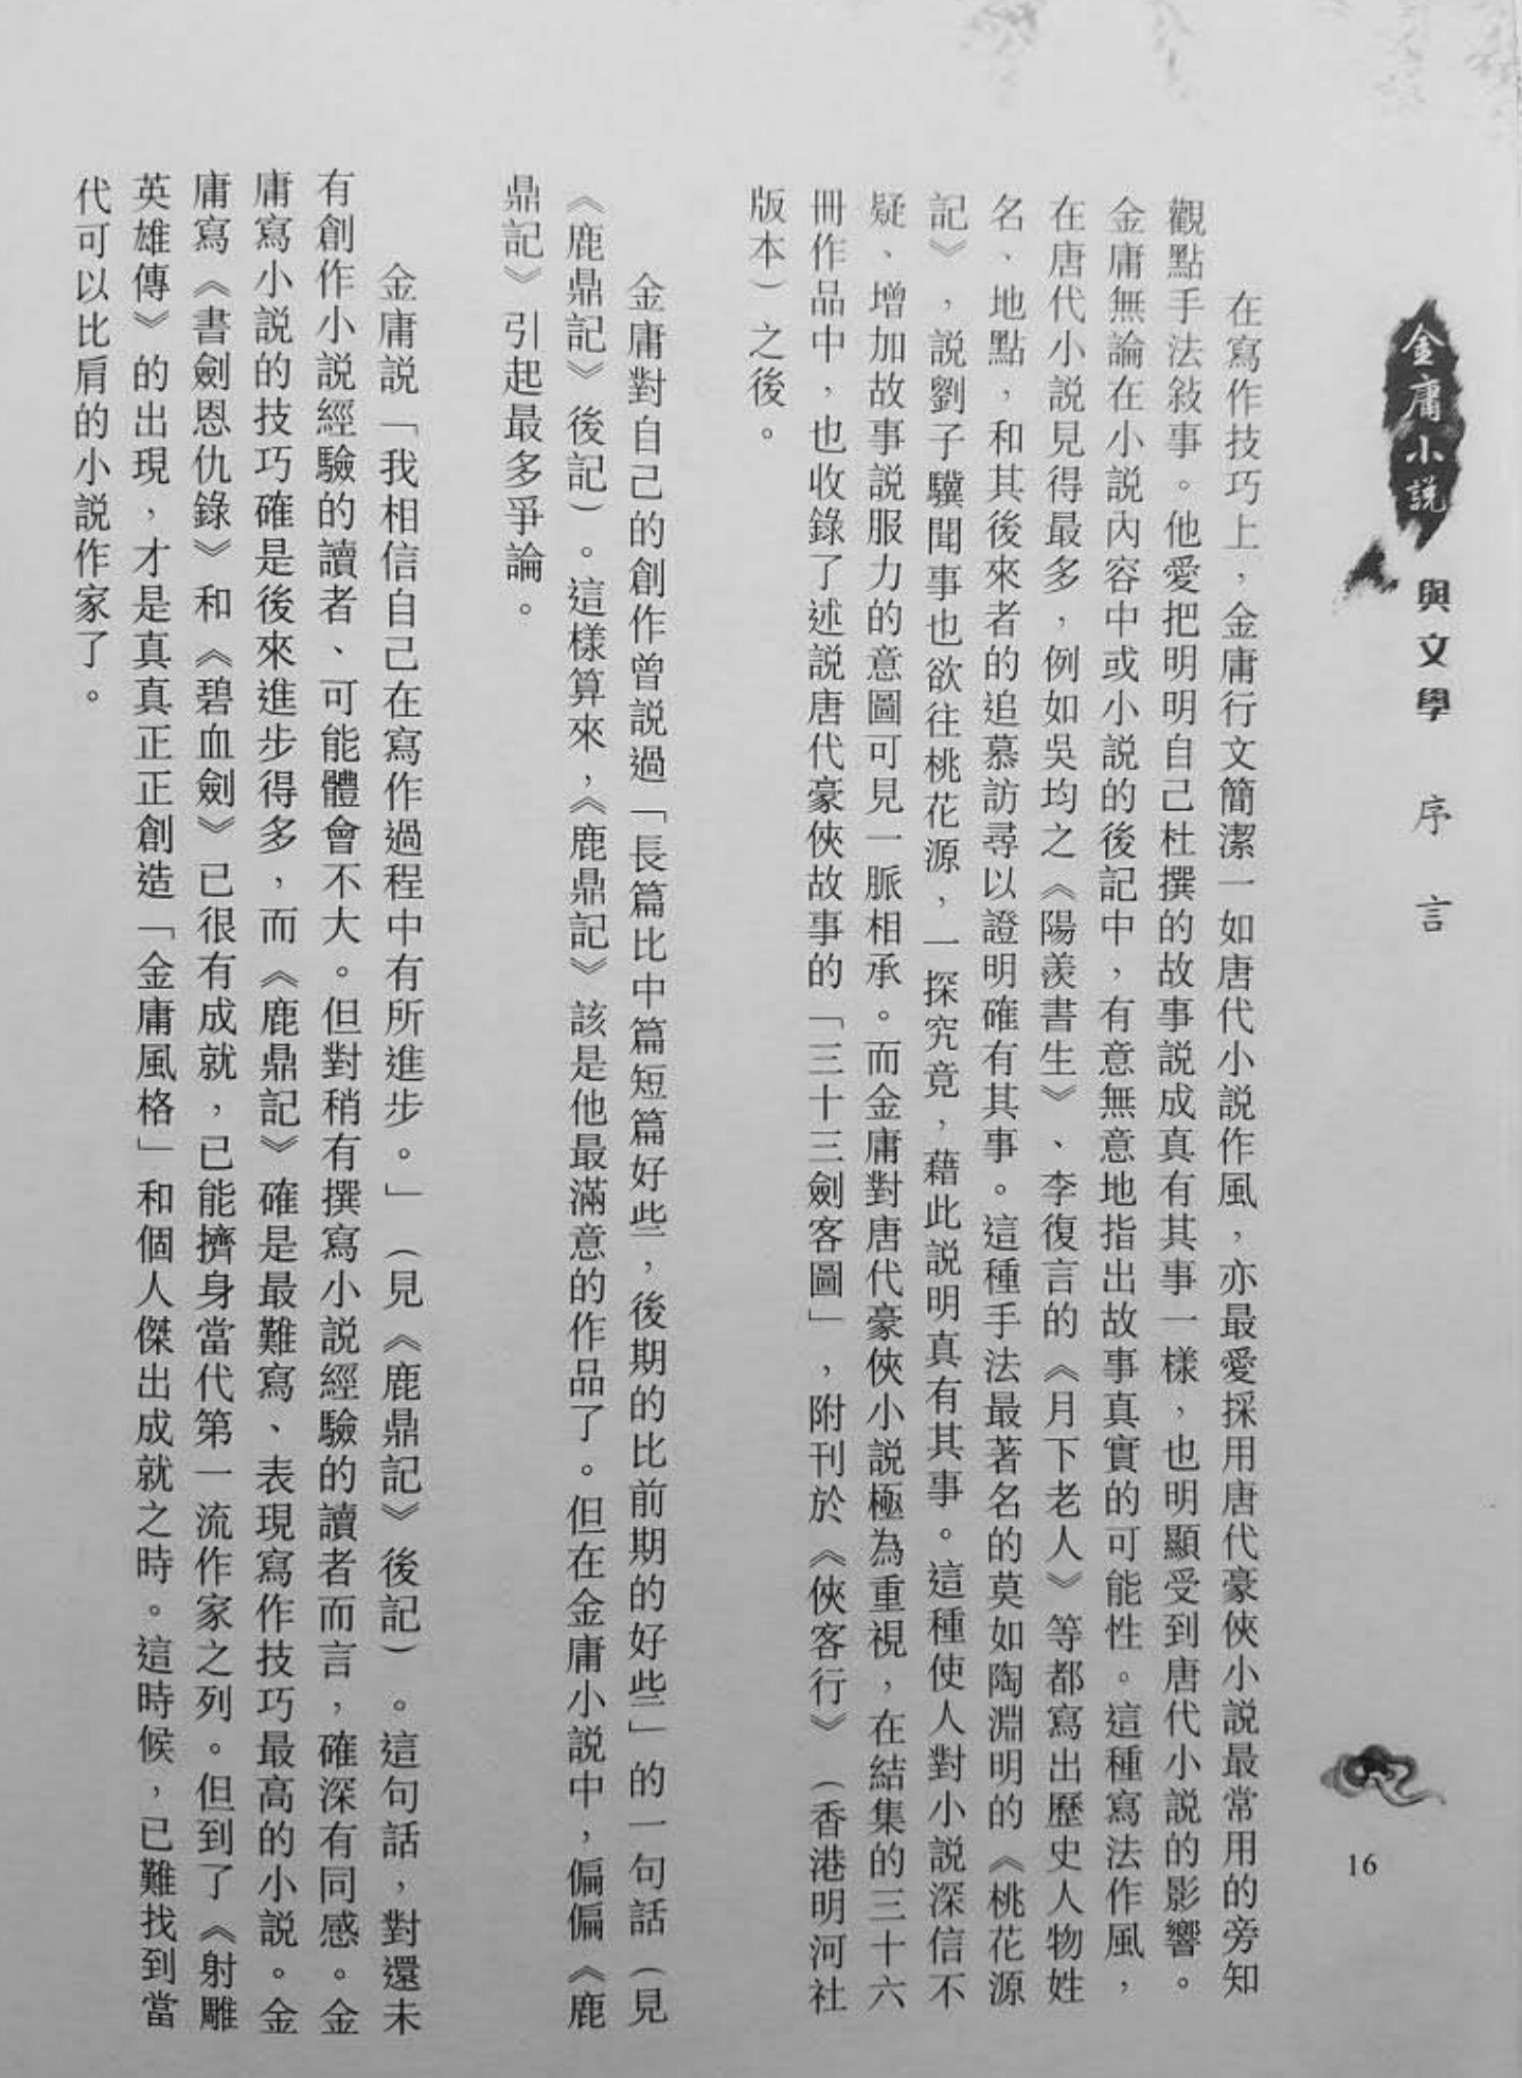 金庸小説與文學 序言
在寫作技巧上，金庸行文簡潔一如唐代小説作風，亦最愛採用唐代豪俠小説最常用的旁知
觀點手法敍事。他愛把明明自己杜撰的故事説成真有其事一樣，也明顯受到唐代小説的影響。
金庸無論在小説內容中或小説的後記中，有意無意地指出故事真實的可能性。這種寫法作風，
在唐代小説見得最多，例如吳均之《陽羨書生》、李復言的《月下老人》等都寫出歷史人物姓
名、地點，和其後來者的追慕訪尋以證明確有其事。這種手法最著名的莫如陶淵明的《桃花源
記》，説劉子驥聞事也欲往桃花源，一探究竟，藉此説明真有其事。這種使人對小説深信不
疑、增加故事説服力的意圖可見一脈相承。而金庸對唐代豪俠小説極為重視，在結集的三十六
冊作品中，也收錄了述説唐代豪俠故事的「三十三劍客圖」，附刊於《俠客行》（香港明河社
版本）之後。
金庸對自己的創作曾説過「長篇比中篇短篇好些，後期的比前期的好些」的一句話（見
《鹿鼎記》後記）。這樣算來，《鹿鼎記》該是他最滿意的作品了。但在金庸小説中，偏偏《鹿
鼎記》引起最多爭論。
金庸説「我相信自己在寫作過程中有所進步。」（見《鹿鼎記》後記）。這句話，對還未
有創作小説經驗的讀者、可能體會不大。但對稍有撰寫小説經驗的讀者而言，確深有同感。金
庸寫小説的技巧確是後來進步得多，而《鹿鼎記》確是最難寫、表現寫作技巧最高的小説。金
庸寫《書劍恩仇錄》和《碧血劍》已很有成就，已能擠身當代第一流作家之列。但到了《射雕
英雄傳》的出現，才是真真正正創造「金庸風格」和個人傑出成就之時。這時候，已難找到當
代可以比肩的小説作家了。
16